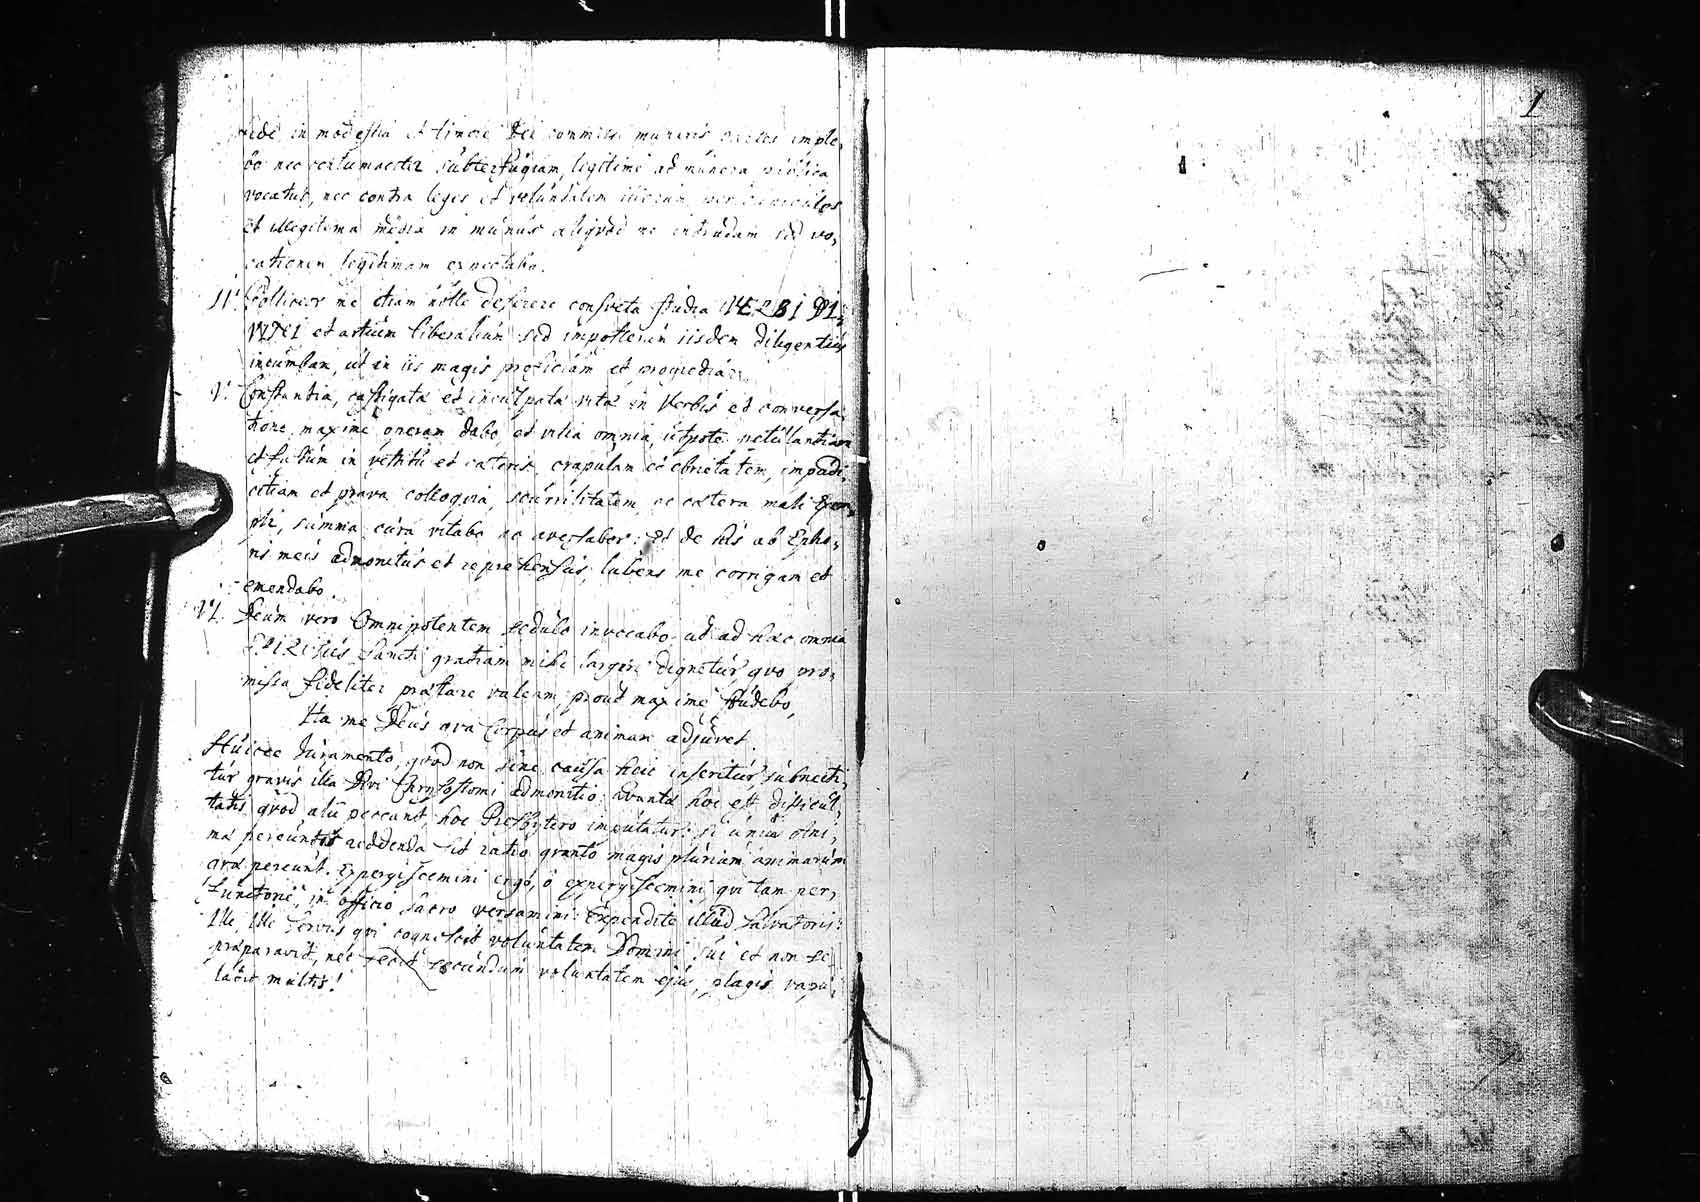 1
fide in modestia et timore Dei commissi muneris partes imple,
bo nec contumaciter subterfugiam, legitime ad munera publica
vocatus, nec contra leges et voluntatem illorum per cuniculos
et illegitima media in munus aliqvod me intrudam sed vo,
cationem legitimam expectabo.
Polliceor me etiam nolle deserere consveta studia VERBI DI,
VINI et artium liberalium sed imposterum iisdem diligentius
incumbam, ut in iis magis proficiam et progrediar.
V. Constantia, castigata et inculpata vita in verbis et conversa,
tione, maxime operam dabo, et vitia omnia, utpote petulantiam
et fastum in vestitu et cæteris, crapulam et ebrietatem, impudi,
citiam et prava colloqvia, scurrilitatem ac cætera mali exem,
pli, summa cura vitabo ac aversabor: et de his ab Epho,
ris meis admonitus et reprehensus, lubens me corrigam et
emendabo.
VI. Deum vero Omnipotentem sedulo invocabo ut ad hæc omnia
Spiritus Sancti gratiam mihi largiri dignetur, qvo pro,
missa fideliter præstare valeam, prout maxime studebo,
Ita me Deus qva Corpus et animam adjuvet.
Huicce Juramento, qvod non sine causa heic inseritur, subnecti,
tur gravis illa Divi Chrysostomi admonitio: Qvanta hoc est difficul,
tatis qvod, alii peccant, hoc Presbytero imputatur: si unius
reddenda sit ratio qvanto magis plurium animarum
qvæ pereunt. Expergiscemini ergo, o expergiscemini qvi tam per,
functorie, in officio sacro versamini: Expendite illud Salvatoris:
Ille servus qvi cognoscit voluntatem Domini sui et non se
præparavit, nec fecit secundum voluntatem ejus, plagis vapu,
labit multis!